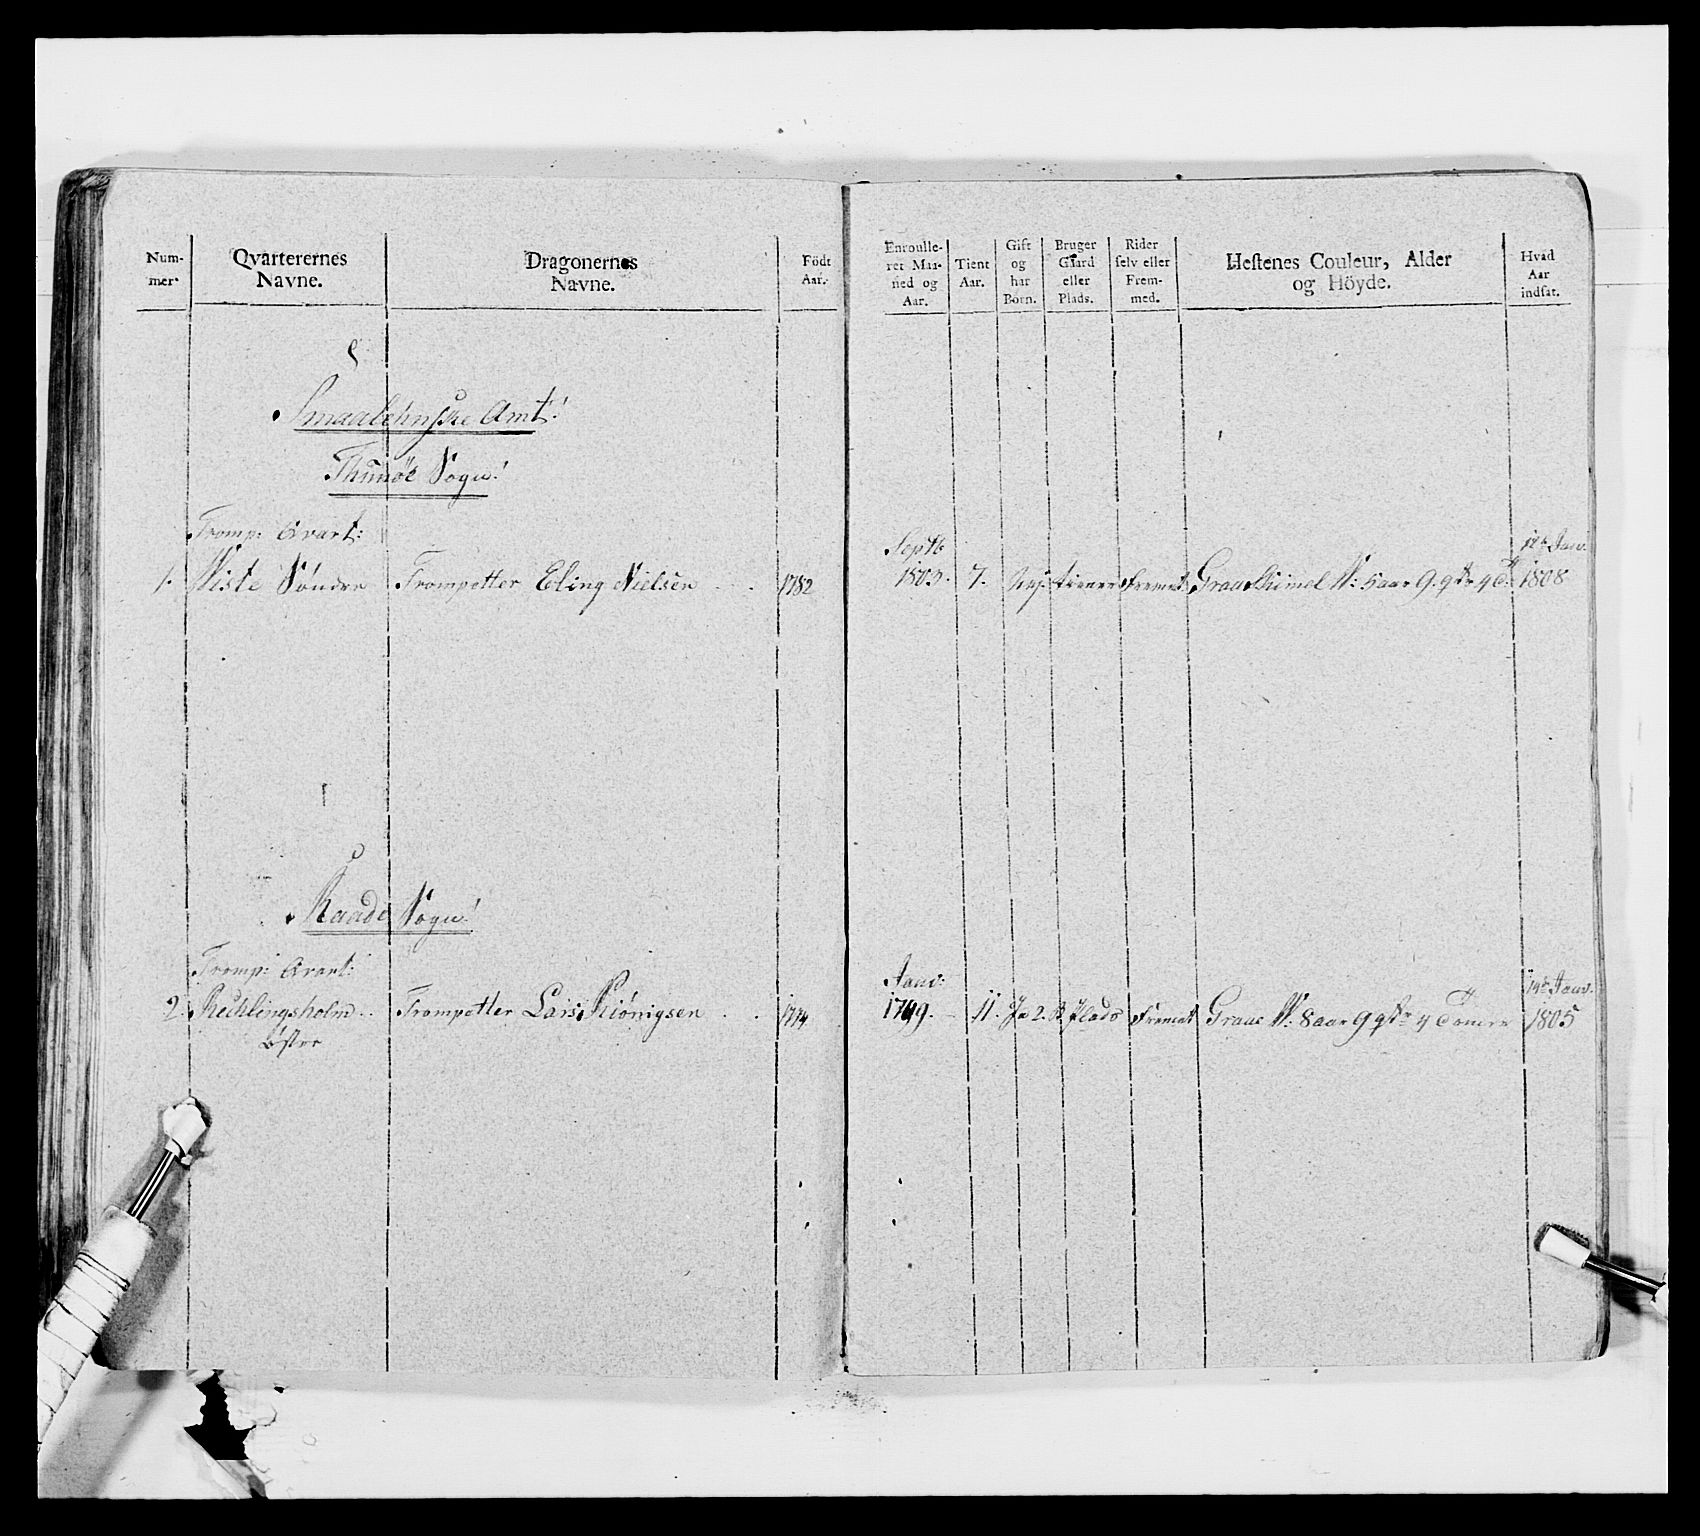 Num-
mer.
Qvarterernes
Navne.
Dragonernes
Navne.
Födt
Aar.
Enroulle-
ret Maa-
ned og
Aar.
Tient
Aar.
Gift
og
har
Börn.
Bruger
Gaard
eller
Plads.
Rider
selv eller
Frem-
med.
Hestenes Couleur, Alder
og Höyde.
Hvad
Aar
indsat.
Smaalehnske Amt
Thunöe Sogn
Tromp: Qvart:
1. Viste Söndre Trompetter Eling Nielsen 1782
Septb
1803. 7. Nej tiener Fremt Graaskimel W: 5 aar 9 qtr 4 T.
12te Janv.
1808
Raade Sogn
Tromp: Qvart:
2. Kechlingsholm Trompetter Lars Kiönigsen 1774
öster
Janv:
1799. 11. Ja 2. B. Plads Fremt Graae W: 8 aar 9 qtr 4 Tomer
14te Janv.
1805